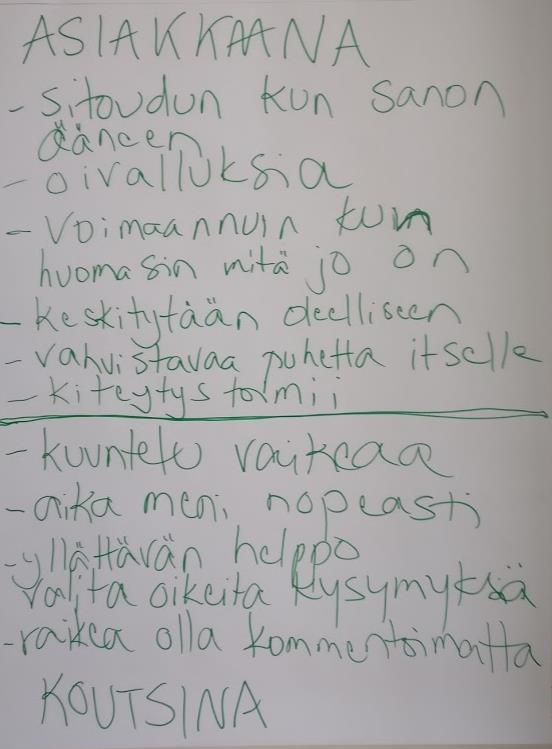 ASIAKKAANA
- sitoudun kun sanon
ääneen
- oivalluksia
- voimaannuin kun
huomasin mitä jo on
- keskitytään oleelliseen
- vahvistavaa puhetta itselle
- kiteytys toimii
- kuuntelu vaikeaa
- aika meni nopeasti
- yllättävän helppo
valita oikeita kysymyksiä
- vaikea olla kommentoimatta
KOUTSINA